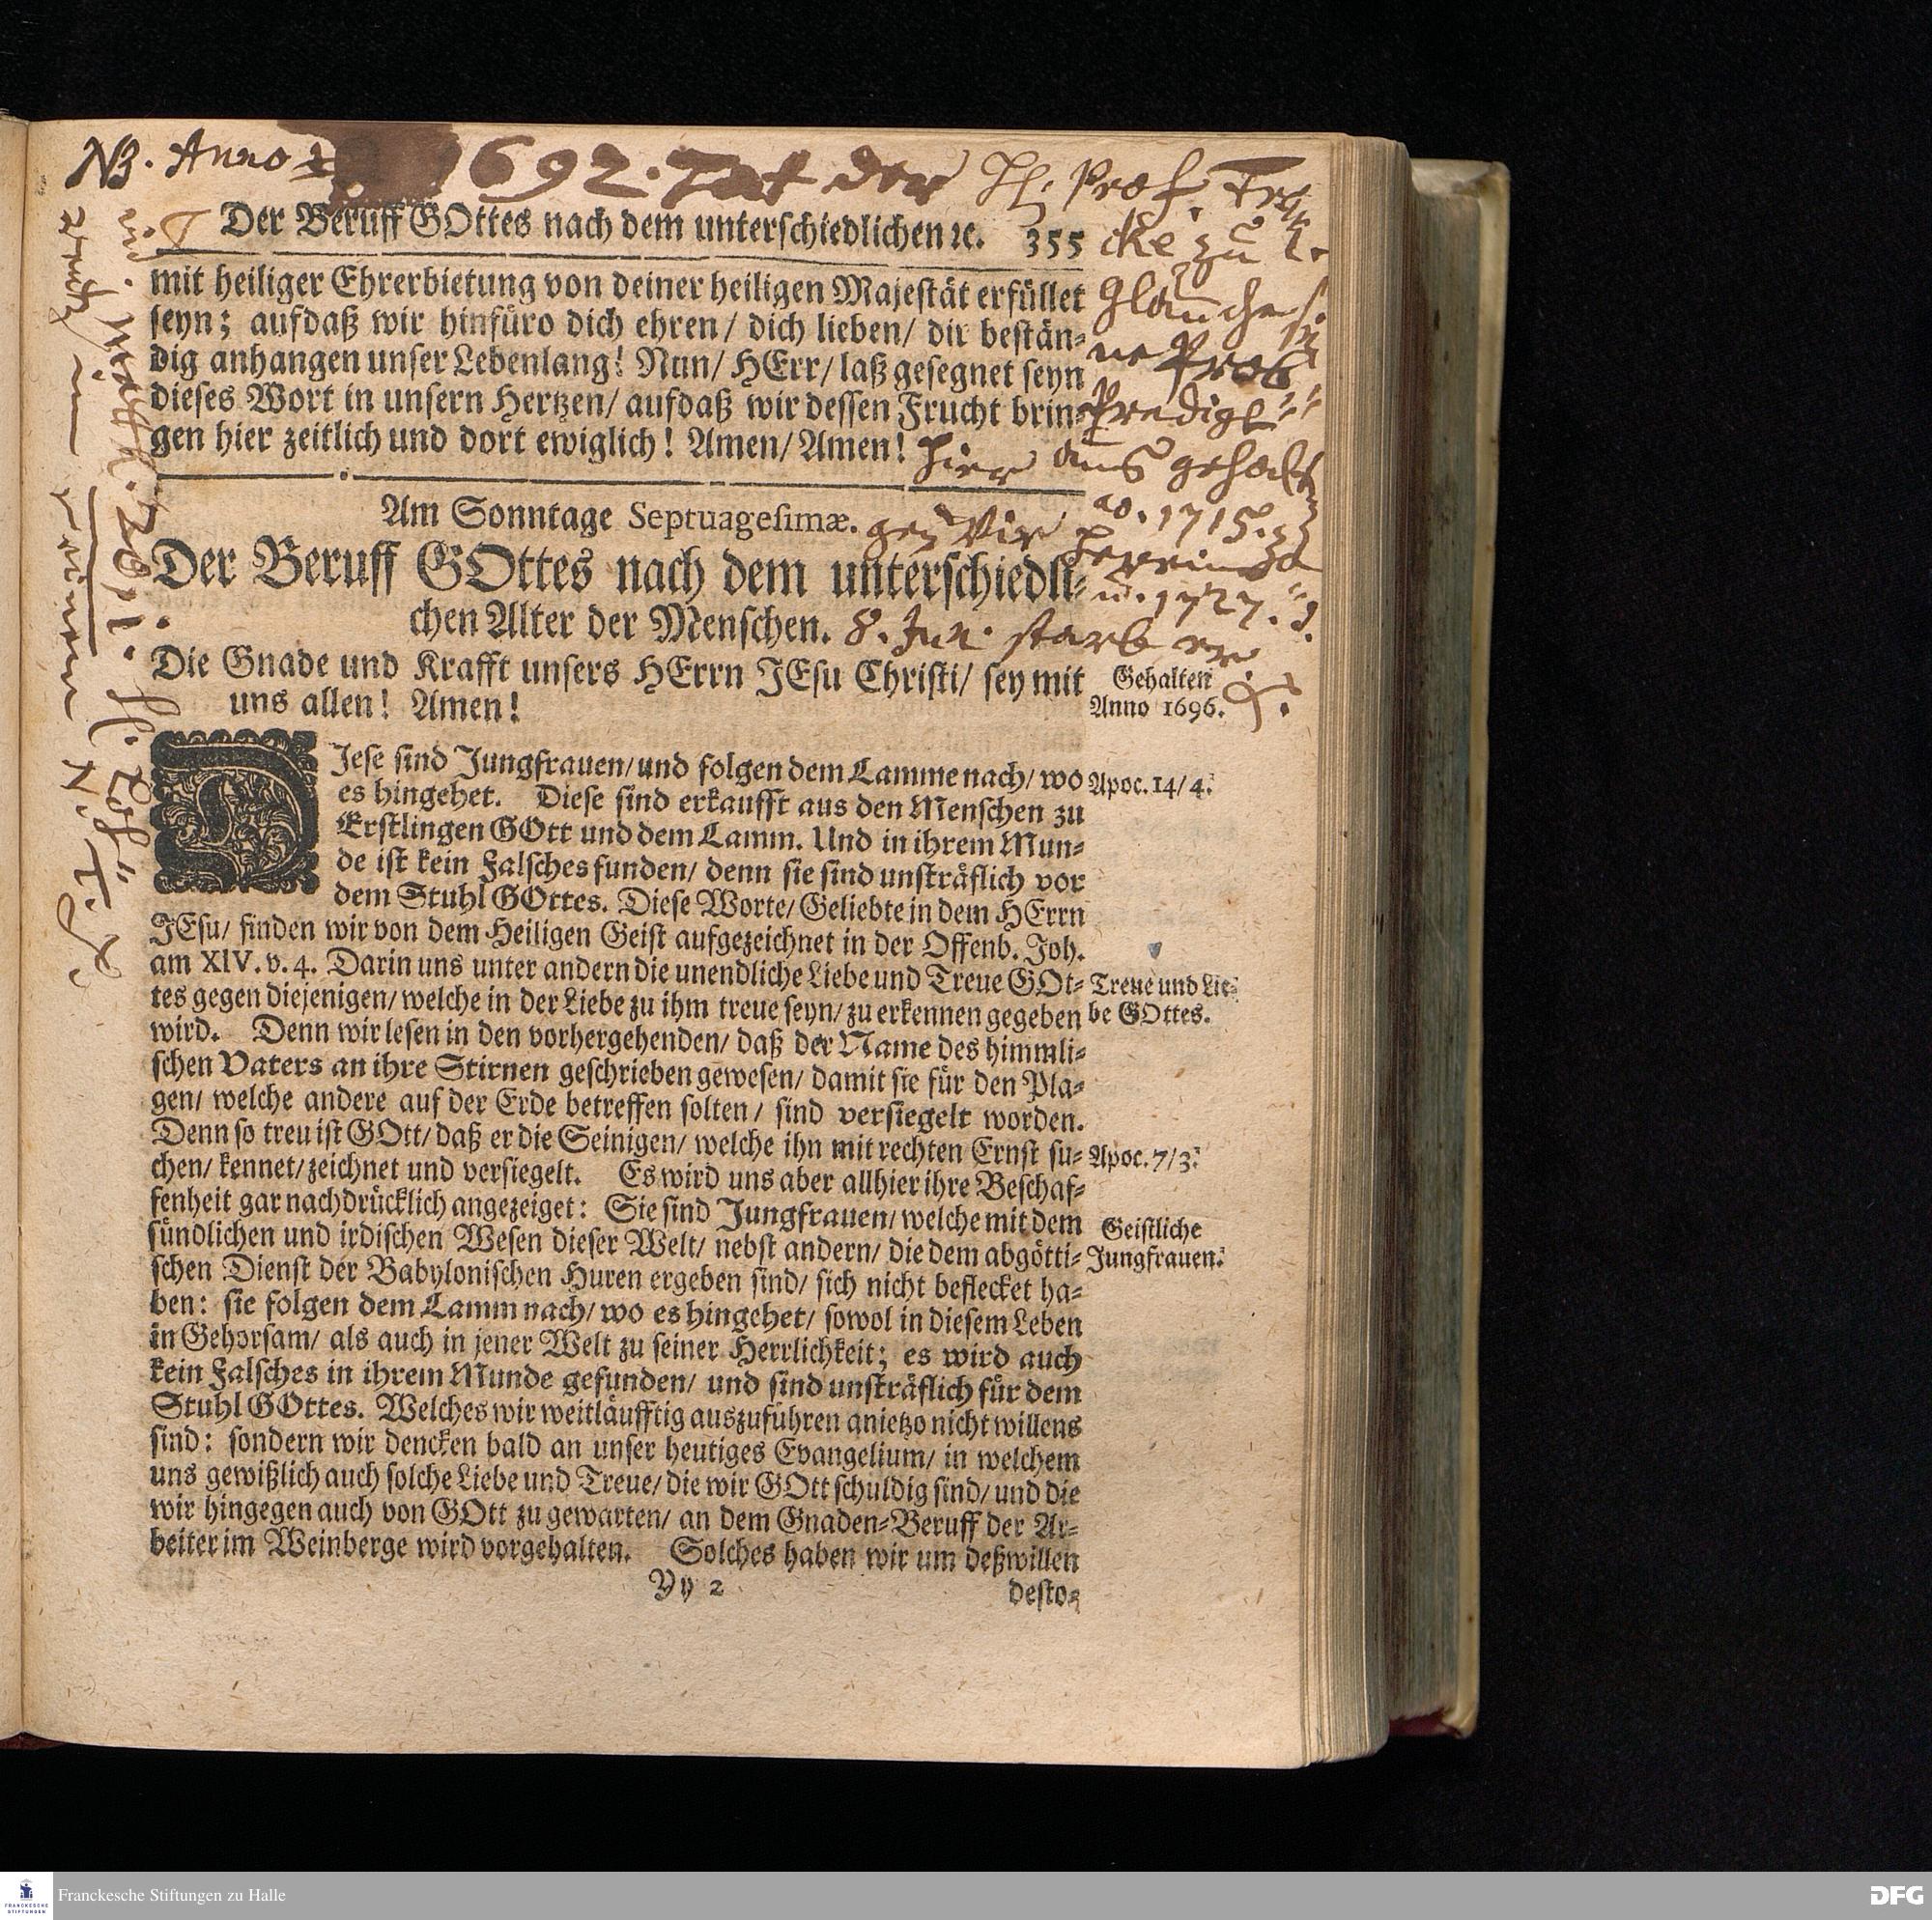 NB. Anno 1692. Hat der H. Prof. Fran
cke zu
Glauchen
ne Prob
Predigt
hier aus gehalt
ao. 1715.
u. 1727. d.
8. Jun. starb er
Der Beruff GOttes nach dem unterschiedlichen ꝛc. 355
mit heiliger Ehrerbietung von deiner heiligen Majestät erfüllet
seyn; aufdaß wir hinfüro dich ehren/ dich lieben/ dir bestän-
dig anhangen unser Lebenlang! Nun/ HErr/ laß gesegnet seyn
dieses Wort in unsern Hertzen/ aufdaß wir dessen Frucht brin-
gen hier zeitlich und dort ewiglich! Amen/ Amen!
Am Sonntage Septuagesimæ.
Der Beruff GOttes nach dem unterschiedli-
chen Alter der Menschen.
Die Gnade und Krafft unsers HErrn JEsu Christi/ sey mit
uns allen! Amen!
Gehalten
Anno 1696.
DJese sind Jungfrauen/ und folgen dem Lamme nach/ wo
es hingehet. Diese sind erkaufft aus den Menschen zu
Erstlingen GOtt und dem Lamm. Und in ihrem Mun-
de ist kein Falsches funden/ denn sie sind unsträflich vor
dem Stuhl GOttes. Diese Worte/ Geliebte in dem HErrn
JEsu/ finden wir von dem Heiligen Geist aufgezeichnet in der Offenb. Joh.
am XIV. v. 4. Darin uns unter andern die unendliche Liebe und Treue GOt-
tes gegen diejenigen/ welche in der Liebe zu ihm treue seyn/ zu erkennen gegeben
wird. Denn wir lesen in den vorhergehenden/ daß der Name des himmli-
schen Vaters an ihre Stirnen geschrieben gewesen/ damit sie für den Pla-
gen/ welche andere auf der Erde betreffen solten/ sind versiegelt worden.
Denn so treu ist GOtt/ daß er die Seinigen/ welche ihn mit rechten Ernst su-
chen/ kennet/ zeichnet und versiegelt. Es wird uns aber allhier ihre Beschaf-
fenheit gar nachdrücklich angezeiget: Sie sind Jungfrauen/ welche mit dem
sündlichen und irdischen Wesen dieser Welt/ nebst andern/ die dem abgötti-
schen Dienst der Babylonischen Huren ergeben sind/ sich nicht beflecket ha-
ben: sie folgen dem Lamm nach/ wo es hingehet/ sowol in diesem Leben
in Gehorsam/ als auch in jener Welt zu seiner Herrlichkeit; es wird auch
kein Falsches in ihrem Munde gefunden/ und sind unsträflich für dem
Stuhl GOttes. Welches wir weitläufftig auszuführen anietzo nicht willens
sind: sondern wir dencken bald an unser heutiges Evangelium/ in welchem
uns gewißlich auch solche Liebe und Treue/ die wir GOtt schuldig sind/ und die
wir hingegen auch von GOtt zu gewarten/ an dem Gnaden-Beruff der Ar-
beiter im Weinberge wird vorgehalten. Solches haben wir um deßwillen
Yy 2 desto-
Apoc. 14/ 4.
Treue und Lie-
be GOttes.
Apoc. 7/3.
Geistliche
Jungfrauen.
Franckesche Stiftungen zu Halle
FRANCKESCHE
STIFTUNGEN
DFG